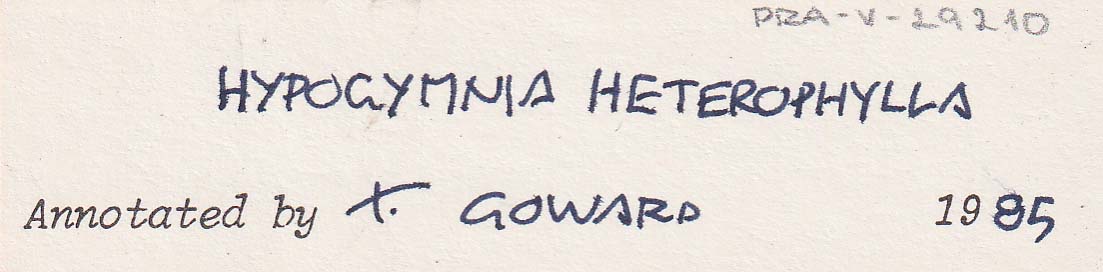 PRA-V-29210
HYPOGYMNIA HETEROPHYLLA
Annotated by T. GOWARD 1985